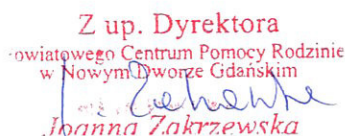 Z up. Dyrektora
owiatowego Centrum Pomocy Rodzinie
w Nowym Dworze Gdańskim
Joanna Zakrzewska